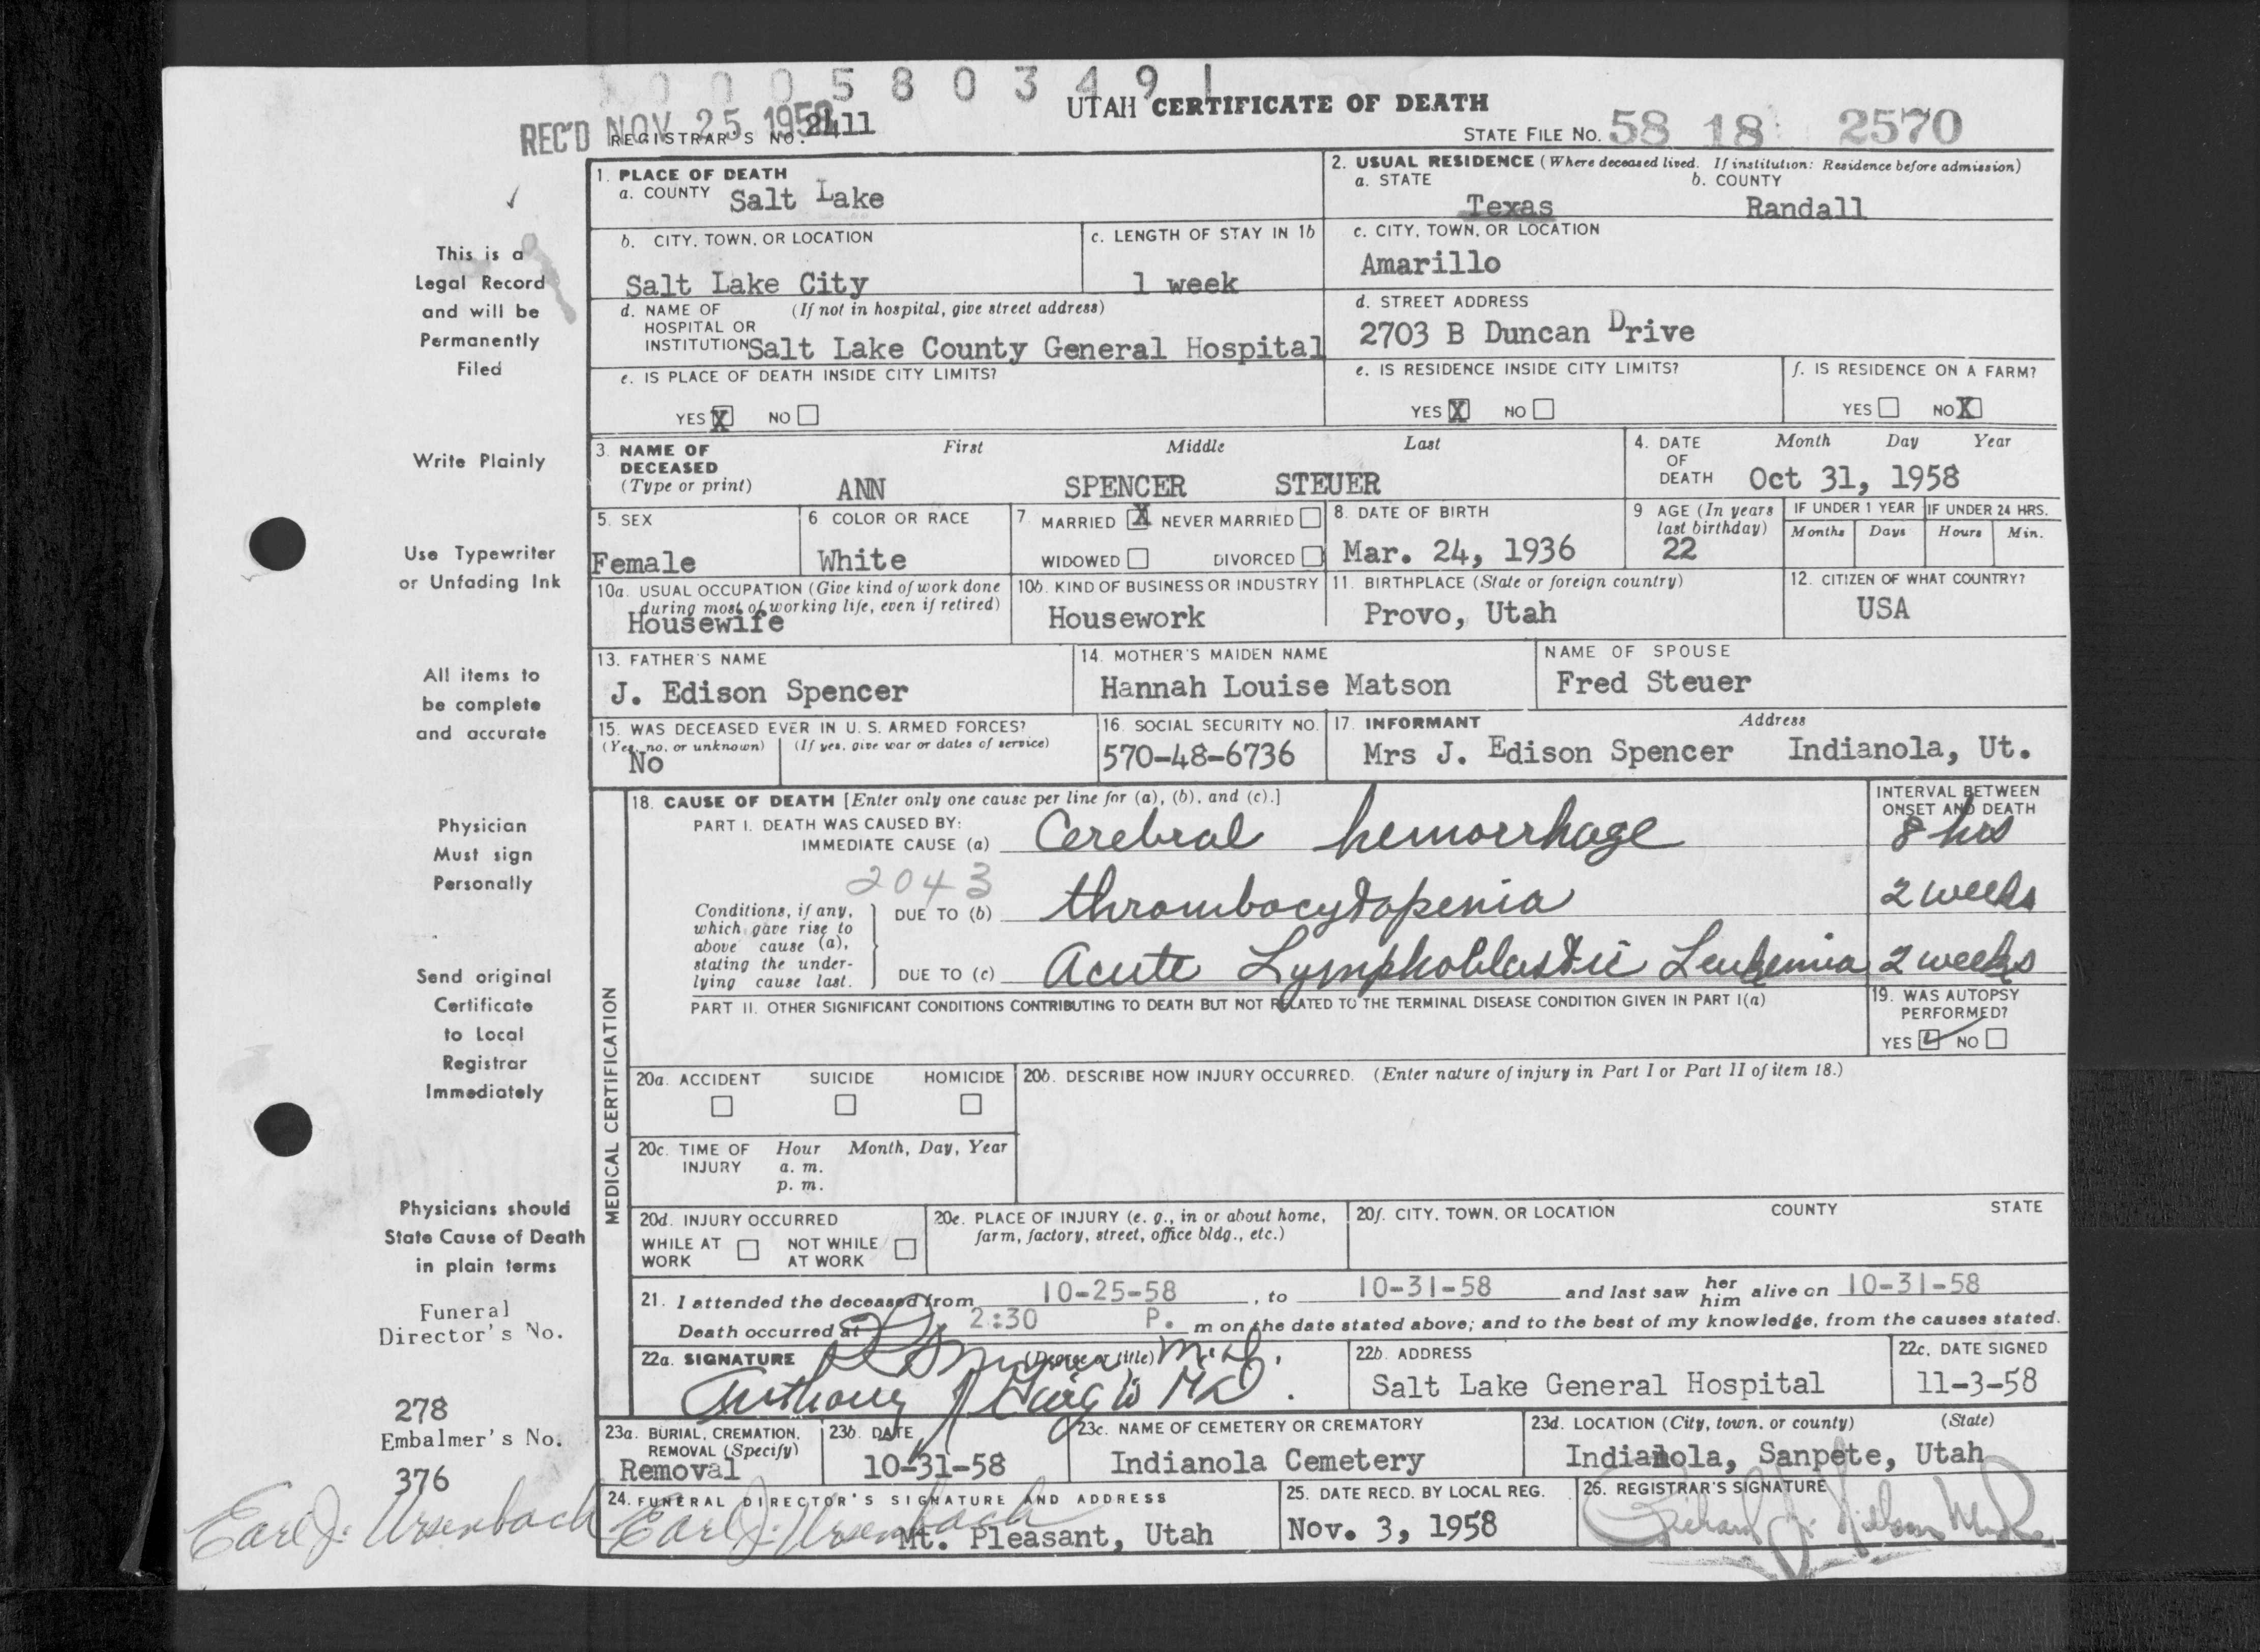 0 0 0 5 8 0 3 4 9 1
UTAH CERTIFICATE OF DEATH
REC'D NOV 25 1958
REGISTRAR'S NO. 2411
STATE FILE NO. 58 18 2570
1. PLACE OF DEATH
a. COUNTY Salt Lake
2. USUAL RESIDENCE (Where deceased lived. If institution: Residence before admission)
a. STATE b. COUNTY
Texas Randall
b. CITY, TOWN, OR LOCATION
Salt Lake City
c. LENGTH OF STAY IN 1b
1 week
c. CITY, TOWN, OR LOCATION
Amarillo
d. NAME OF (If not in hospital, give street address)
HOSPITAL OR
INSTITUTION Salt Lake County General Hospital
d. STREET ADDRESS
2703 B Duncan Drive
e. IS PLACE OF DEATH INSIDE CITY LIMITS?
YES X NO
e. IS RESIDENCE INSIDE CITY LIMITS?
YES X NO
f. IS RESIDENCE ON A FARM?
YES NO X
3. NAME OF
DECEASED
(Type or print)
First Middle Last
ANN SPENCER STEUER
4. DATE
OF
DEATH
Month Day Year
Oct 31, 1958
5. SEX
Female
6 COLOR OR RACE
White
7. MARRIED X NEVER MARRIED
WIDOWED DIVORCED
8. DATE OF BIRTH
Mar. 24, 1936
9 AGE (In years
last birthday)
22
IF UNDER 1 YEAR
Months Days
IF UNDER 24 HRS.
Hours Min.
10a. USUAL OCCUPATION (Give kind of work done
during most of working life, even if retired)
Housewife
10b. KIND OF BUSINESS OR INDUSTRY
Housework
11. BIRTHPLACE (State or foreign country)
Provo, Utah
12. CITIZEN OF WHAT COUNTRY?
USA
13. FATHER'S NAME
J. Edison Spencer
14. MOTHER'S MAIDEN NAME
Hannah Louise Matson
NAME OF SPOUSE
Fred Steuer
15. WAS DECEASED EVER IN U. S. ARMED FORCES?
(Yes, no, or unknown) (If yes, give war or dates of service)
No
16. SOCIAL SECURITY NO.
570-48-6736
17. INFORMANT Address
Mrs J. Edison Spencer Indianola, Ut.
MEDICAL CERTIFICATION
18. CAUSE OF DEATH [Enter only one cause per line for (a), (b), and (c).]
PART I. DEATH WAS CAUSED BY:
IMMEDIATE CAUSE (a) Cerebral hemorrhage
INTERVAL BETWEEN
ONSET AND DEATH
8 hrs
2043
Conditions, if any,
which gave rise to
above cause (a),
stating the under-
lying cause last.
DUE TO (b) thrombocytopenia 2 weeks
DUE TO (c) Acute Lymphoblastic Leukemia 2 weeks
PART II. OTHER SIGNIFICANT CONDITIONS CONTRIBUTING TO DEATH BUT NOT RELATED TO THE TERMINAL DISEASE CONDITION GIVEN IN PART I(a)
19. WAS AUTOPSY
PERFORMED?
YES ✓ NO
20a. ACCIDENT SUICIDE HOMICIDE
20b. DESCRIBE HOW INJURY OCCURRED. (Enter nature of injury in Part I or Part II of item 18.)
20c. TIME OF Hour Month, Day, Year
INJURY a. m.
p. m.
20d. INJURY OCCURRED
WHILE AT NOT WHILE
WORK AT WORK
20e. PLACE OF INJURY (e. g., in or about home,
farm, factory, street, office bldg., etc.)
20f. CITY, TOWN, OR LOCATION COUNTY STATE
21. I attended the deceased from 10-25-58, to 10-31-58 and last saw her him alive on 10-31-58
Death occurred at 2:30 P. m on the date stated above; and to the best of my knowledge, from the causes stated.
22a. SIGNATURE (Degree or title) M.D.
Anthony MD.
22b. ADDRESS
Salt Lake General Hospital
22c. DATE SIGNED
11-3-58
23a. BURIAL, CREMATION,
REMOVAL (Specify)
Removal
23b. DATE
10-31-58
23c. NAME OF CEMETERY OR CREMATORY
Indianola Cemetery
23d. LOCATION (City, town, or county) (State)
Indianola, Sanpete, Utah
24. FUNERAL DIRECTOR'S SIGNATURE AND ADDRESS
Earl J. Ursenbach
Mt. Pleasant, Utah
25. DATE RECD. BY LOCAL REG.
Nov. 3, 1958
26. REGISTRAR'S SIGNATURE
Richard J. Nelson
This is a
Legal Record
and will be
Permanently
Filed
Write Plainly
Use Typewriter
or Unfading Ink
All items to
be complete
and accurate
Physician
Must sign
Personally
Send original
Certificate
to Local
Registrar
Immediately
Physicians should
State Cause of Death
in plain terms
Funeral
Director's No.
278
Embalmer's No.
376
Earl J. Ursenbach